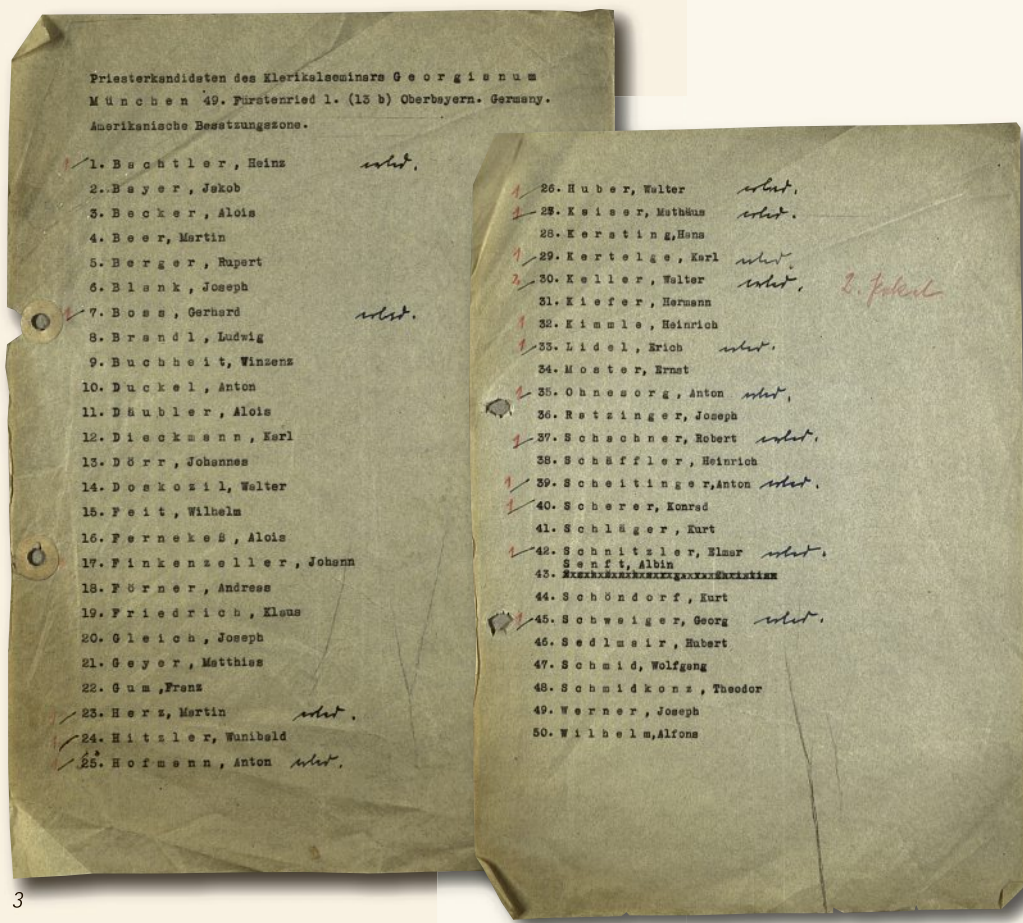 Priesterkandidaten des Klerikalseminars G e o r g i a n u m
M ü n c h e n 49. Fürstenried 1. (13 b) Oberbayern. Germany.
Amerikanische Besatzungszone.
1 1. B a c h t l e r , Heinz erled.
2. B a y e r , Jakob
3. B e c k e r , Alois
4. B e e r, Martin
5. B e r g e r , Rupert
6. B l a n k , Joseph
1 7. B o s s , Gerhard erled.
8. B r a n d l , Ludwig
9. B u c h h e i t, Winzenz
10. D u c k e l , Anton
11. D ä u b l e r , Alois
12. D i e c k m a n n , Karl
13. D ö r r , Johannes
14. D o s k o z i l, Walter
15. F e i t , Wilhelm
16. F e r n e k e ß , Alois
17. F i n k e n z e l l e r , Johann
18. F ö r n e r , Andreas
19. F r i e d r i c h , Klaus
20. G l e i c h , Joseph
21. G e y e r , Matthias
22. G u m ,Franz
1 23. H e r z, Martin erled.
1 24. H i t z l e r, Wunibald
1 25. H o f m a n n , Anton erled.
1 26. H u b e r, Walter erled.
1 27. K a i s e r, Mathäus erled.
28. K e r s t i n g,Hans
1 29. K e r t e l g e , Karl erled.
2 30. K e l l e r , Walter erled. 2. Paket
31. K i e f e r , Hermann
1 32. K i m m l e , Heinrich
1 33. L i d e l , Erich erled.
34. M o s t e r, Ernst
1 35. O h n e s o r g , Anton erled.
36. R a t z i n g e r, Joseph
1 37. S c h a c h n e r, Robert erled.
38. S c h ä f f l e r , Heinrich
1 39. S c h e i t i n g e r,Anton erled.
1 40. S c h e r e r, Konrad
41. S c h l ä g e r , Kurt
1 42. S c h n i t z l e r, Elmar erled.
S e n f t, Albin
43.
44. S c h ö n d o r f , Kurt
1 45. S c h w a i g e r, Georg erled.
46. S e d l m a i r , Hubert
47. S c h m i d, Wolfgang
48. S c h m i d k o n z , Theodor
49. W e r n e r , Joseph
50. W i l h e l m,Alfons
3